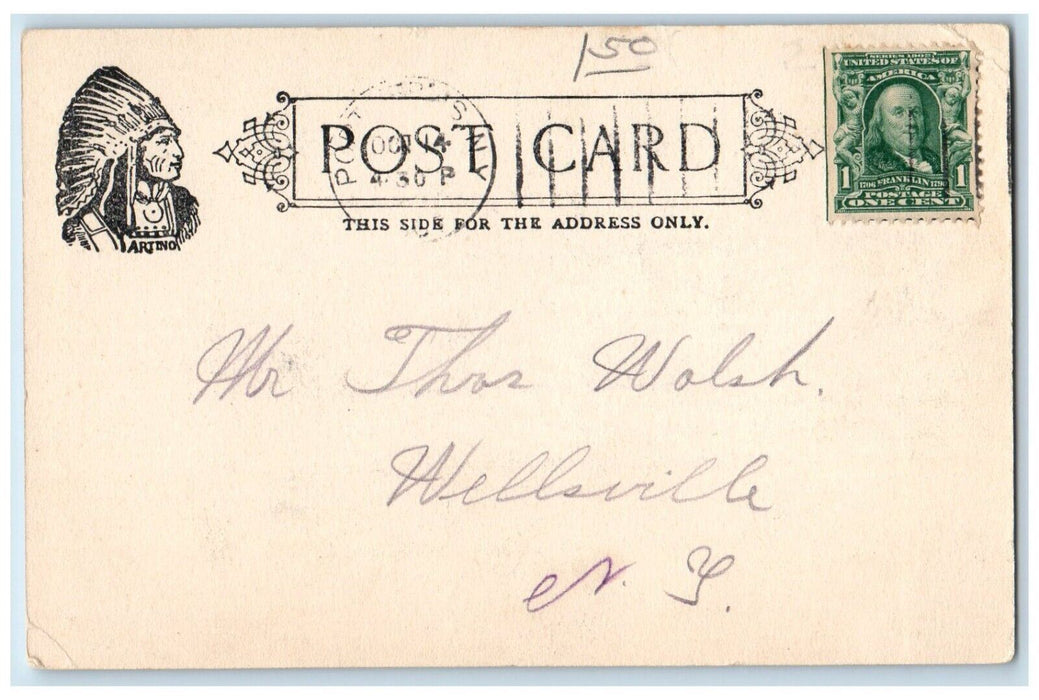 150
SERIES 1902
UNITED STATES OF
AMERICA
1706 FRANKLIN 1790
1 POSTAGE 1
ONE CENT
POST CARD
N.Y.
OCT 4
4-30 P
THIS SIDE FOR THE ADDRESS ONLY.
ARTINO
Mr Thos Walsh.
Wellsville
N. Y.